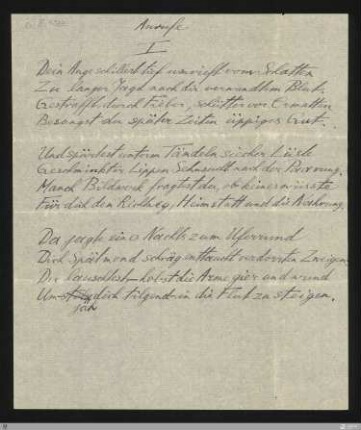 Anrufe
I
Dein Auge schillert tief umrieft vom Schatten
Zu langer Jagd nach dir verwandtem Blut.
Gestrafft durch Fieber, schütter vor Ermatten
Besangst du später Zeiten üppiges Gut.
Und spürtest unterm Tändeln siecher Lüste
Geschminkter Lippen Sehnsucht nach der
Manch Bildwerk fragtest du, ob keiner wüsste
Für dich den Richtweg, Heimstatt und die Nahrung.
Da jagte eines Nachts zum Uferrund
Dich Spätmond schräg enttaucht verdorrten Zweigen
Du lauschtest – hobst die Arme gier und wund
Um dich tilgend in die Flut zu steigen.
sich